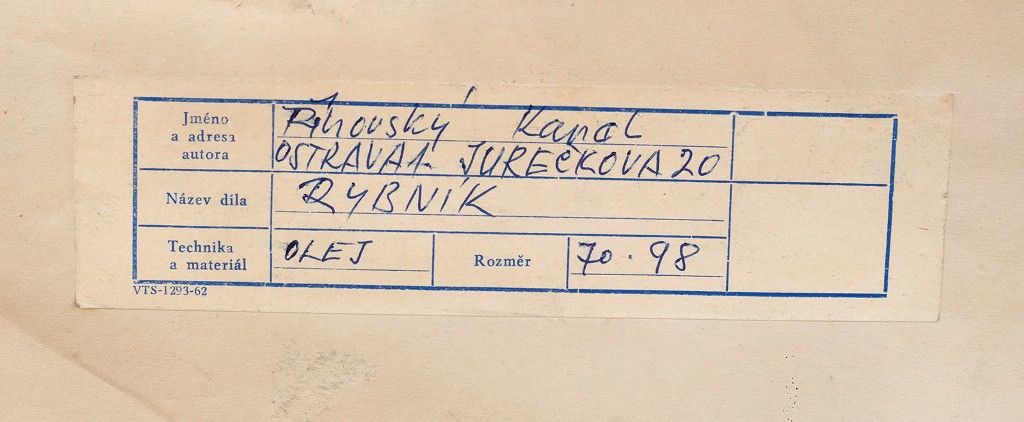 Jméno
a adresa
autora
Říhovský Karel
OSTRAVA 1. JUREČKOVA 20
Název díla
RYBNÍK
Technika
a materiál
OLEJ
Rozměr
70 · 98
VTS-1293-62